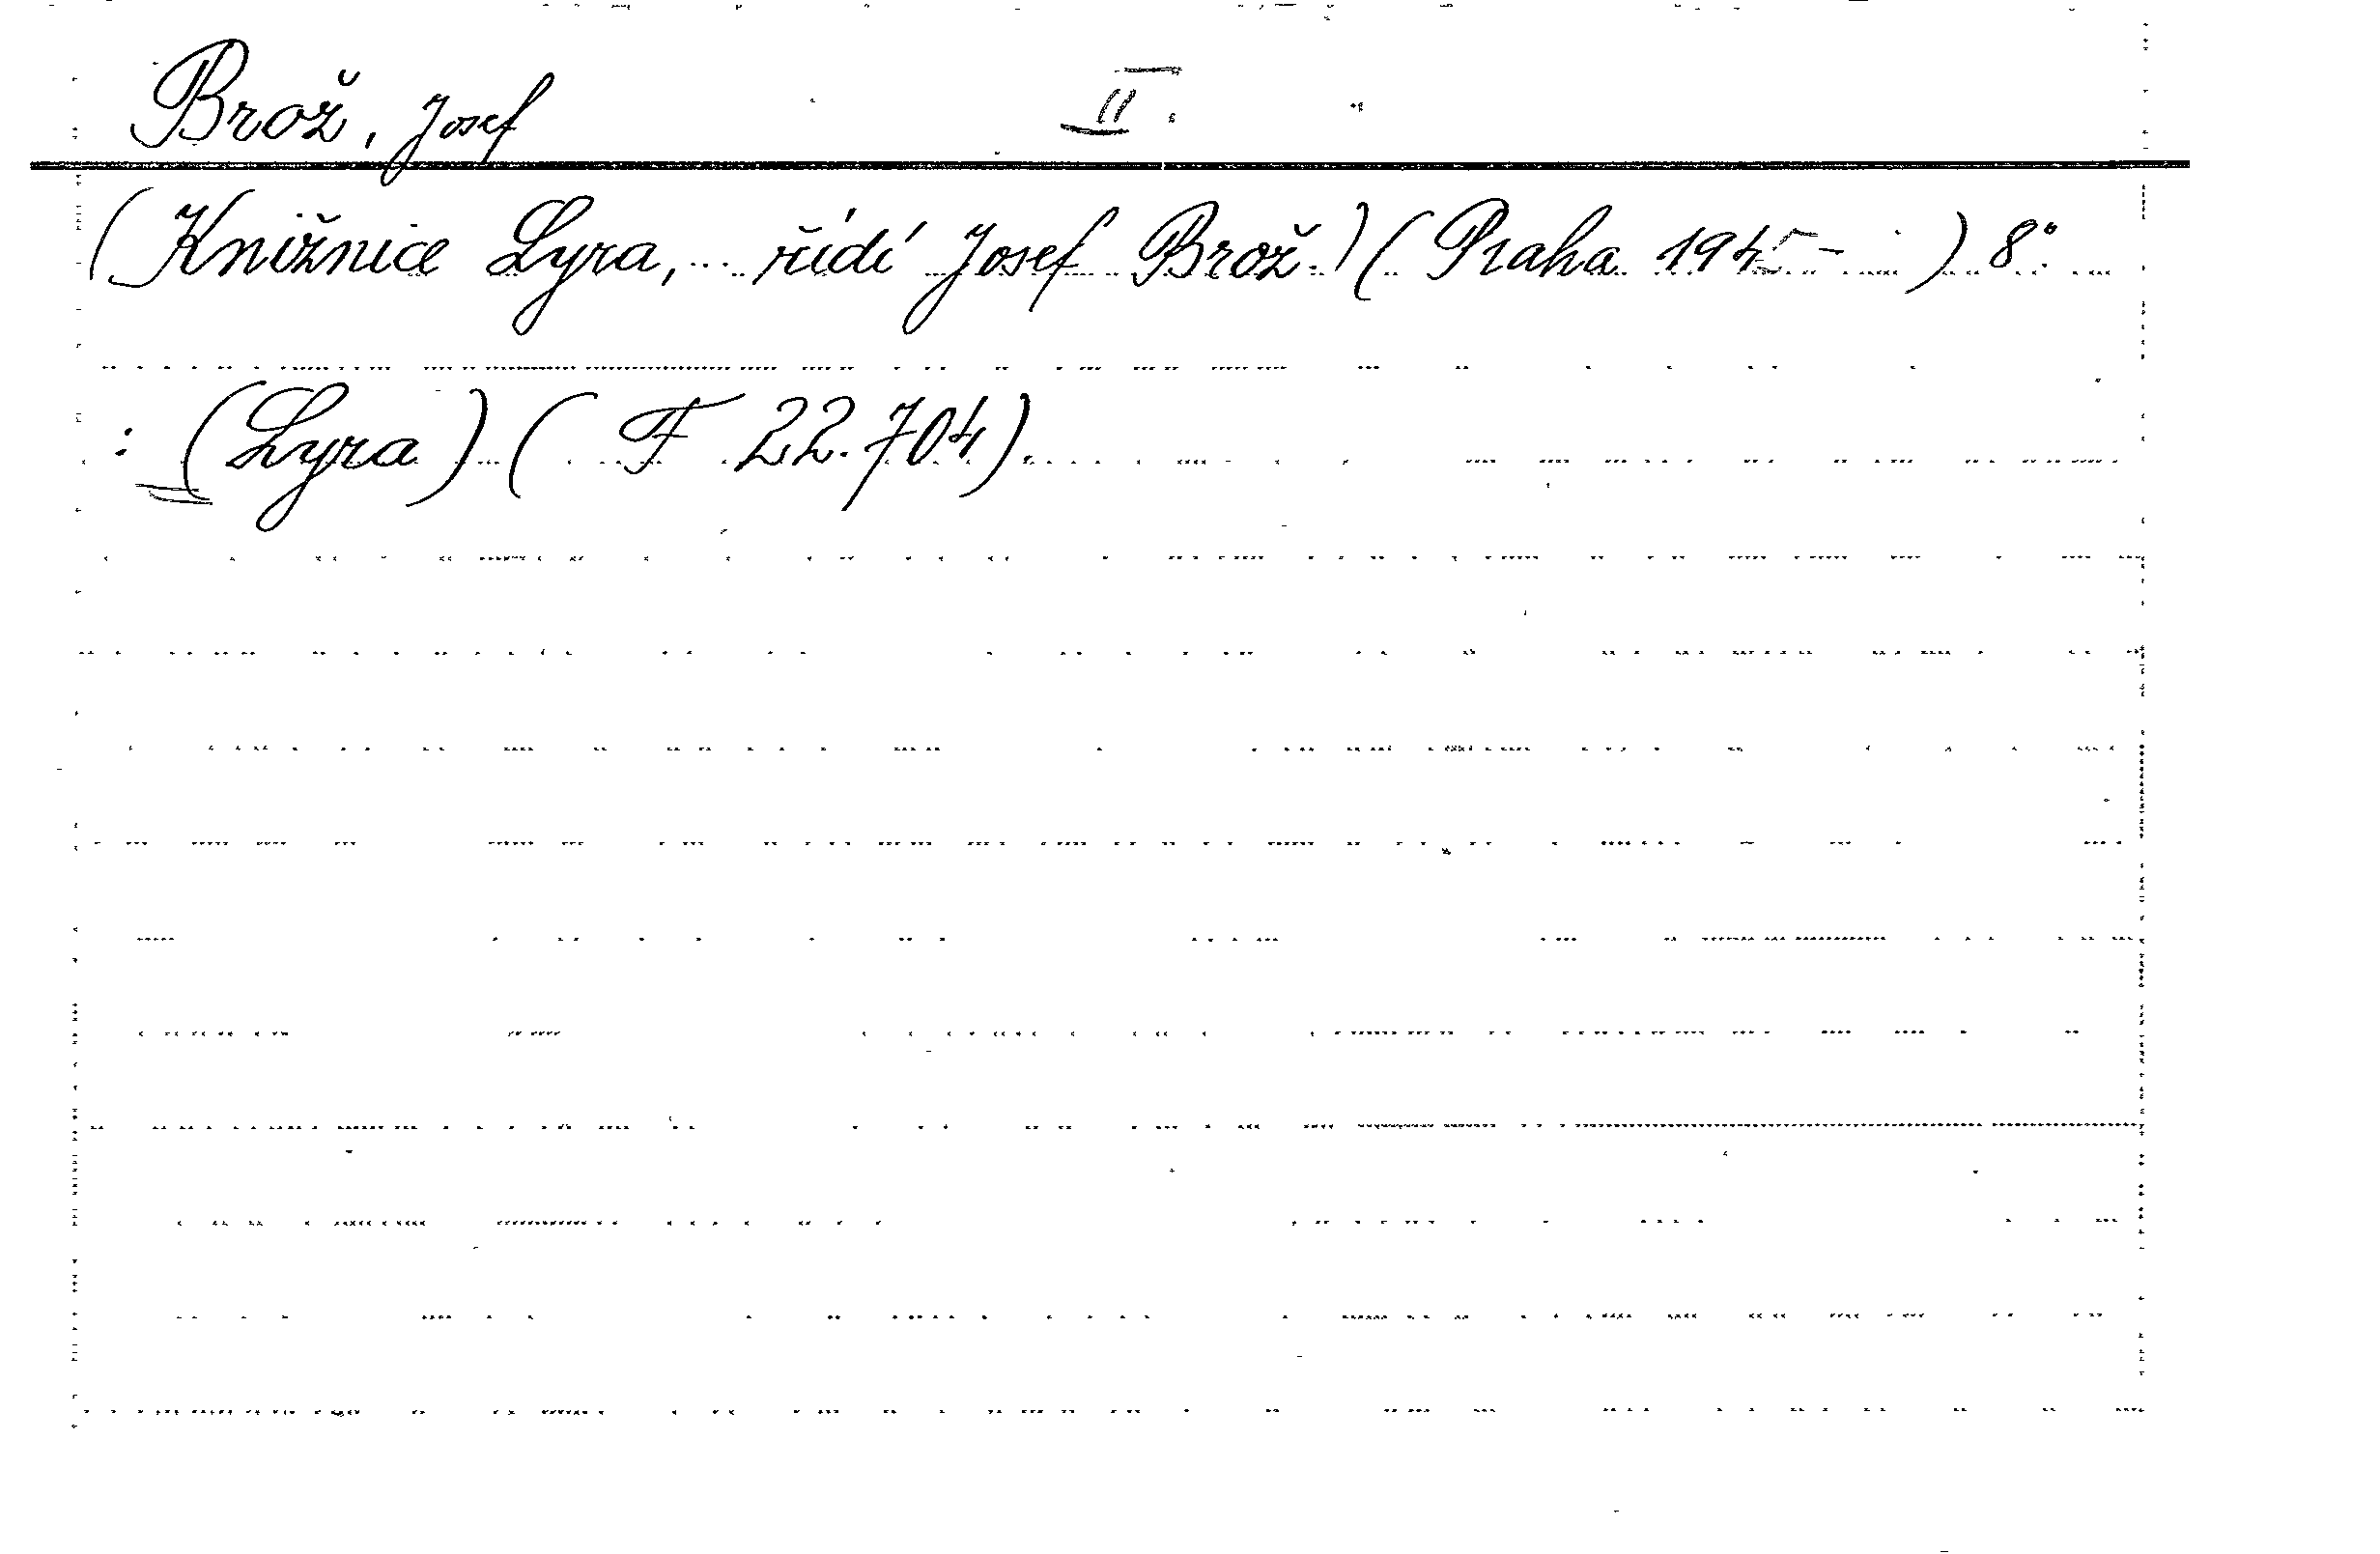 Brož, Josef II.
(Knižnice Lyra, ... řídí Josef Brož.) (Praha 1945- ) 8°.
: (Lyra) (F 22.704).